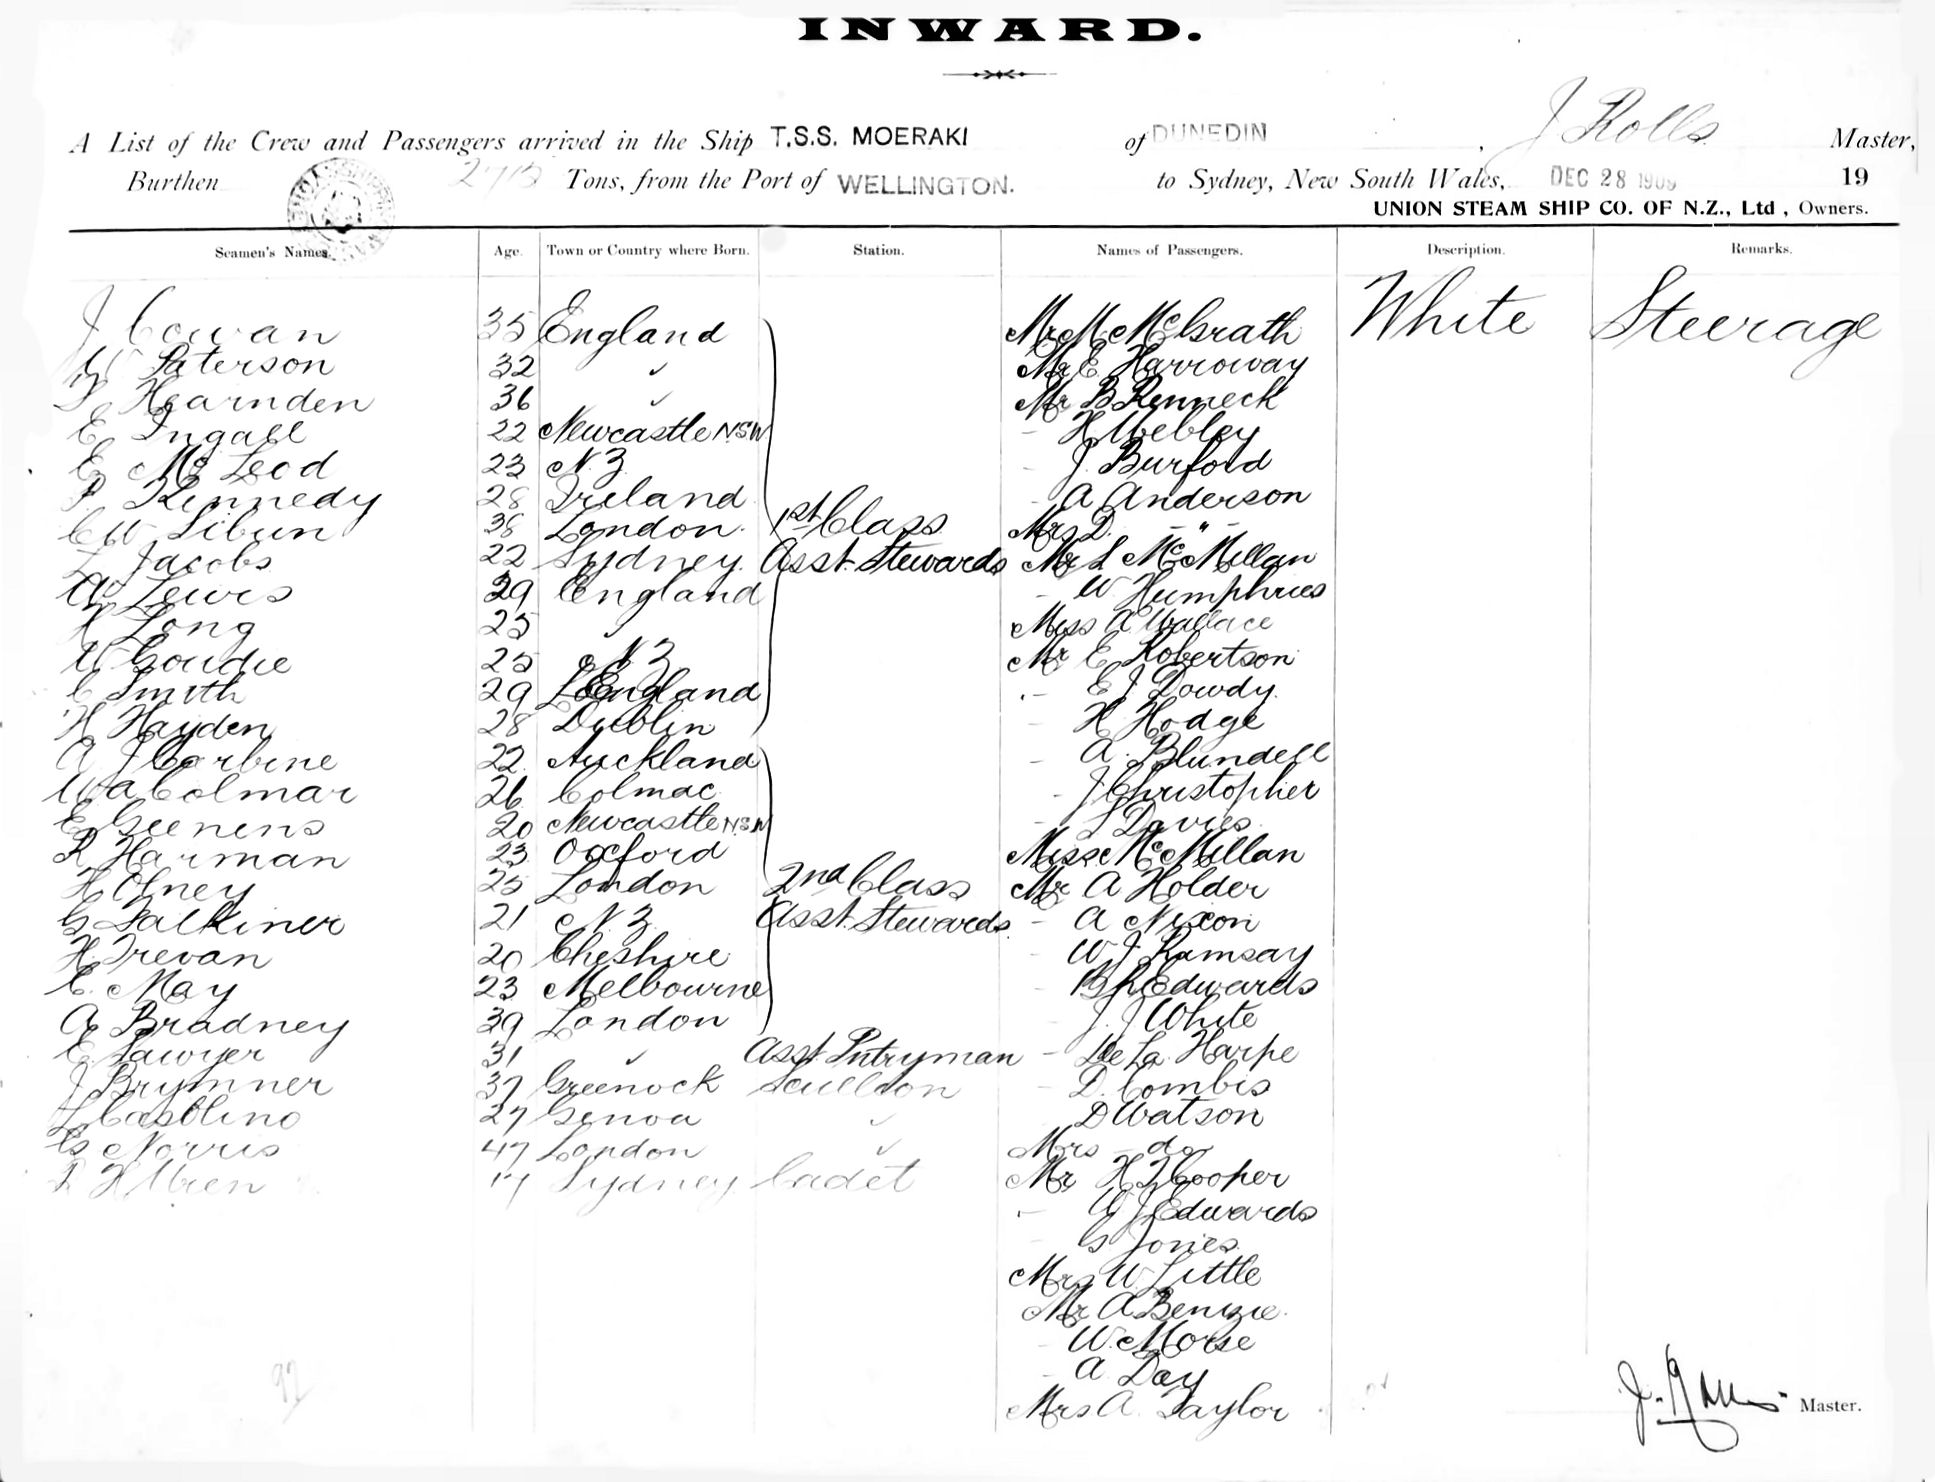 INWARD.
A List of the Crew and Passengers arrived in the Ship T.S.S. MOERAKI of DUNEDIN, J Rolls Master,
Burthen Tons, from the Port of WELLINGTON. to Sydney, New South Wales, DEC 28 1909 19
UNION STEAM SHIP CO. OF N.Z., Ltd, Owners.
Seamen's Names. Age. Town or Country where Born. Station. Names of Passengers. Description. Remarks.
J Cowan 35 England Mr M McGrath White Steerage
W Paterson 32 " Mr E Harroway
Hearnden 36 " Mr B Renneck
E Ingall 22 Newcastle NSW - H Webley
E McLeod 23 N.Z. - J. Burford
P Kennedy 28 Ireland - A Anderson
CW Sibun 38 London. 1st Class Mrs D. - " -
Jacobs 22 Sydney. Asst. Stewards Mr L McMillan
W Lewis 29 England - W Humphries
H Long 25 " Miss A Wallace
W Goudie 25 N Z Mr E Robertson
C Smith 29 England - E J Dowdy.
H Hayden 28 Dublin - H Hodge
A J Corbine 22 Auckland - A. Blundell
W A Colmar 26 Colmac - J Christopher
E Geenens 20 Newcastle NSW - S Davies
R Harman 23 Oxford Miss McMillan
H Olney 25 London 2nd Class Mr A Holder
G Falkiner 21 N Z Asst. Stewards - A Nixon
H Trevan 20 Cheshire - W J Ramsay
C. May 23 Melbourne - Edwards
A Bradney 39 London - J. J White
E Sawyer 31 " Asst. Pntryman - De La Harpe
J Brymner 37 Greenock Scullion - D. Combis
27 Genoa " - D Watson
G Norris 47 London " Mrs - do -
17 Sydney Cadet Mr H J Cooper
- W J Edwards
- G Jones
Mrs W. Little
Mr A Benzie.
- W. Morse
- A Day
Mrs A. Taylor
92
J. Rolls Master.